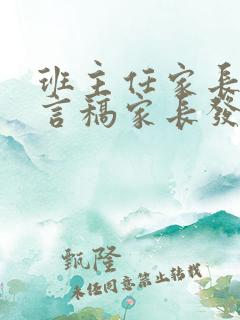 班主任家長
言稿家長發
甄隆
未经同意禁止转载